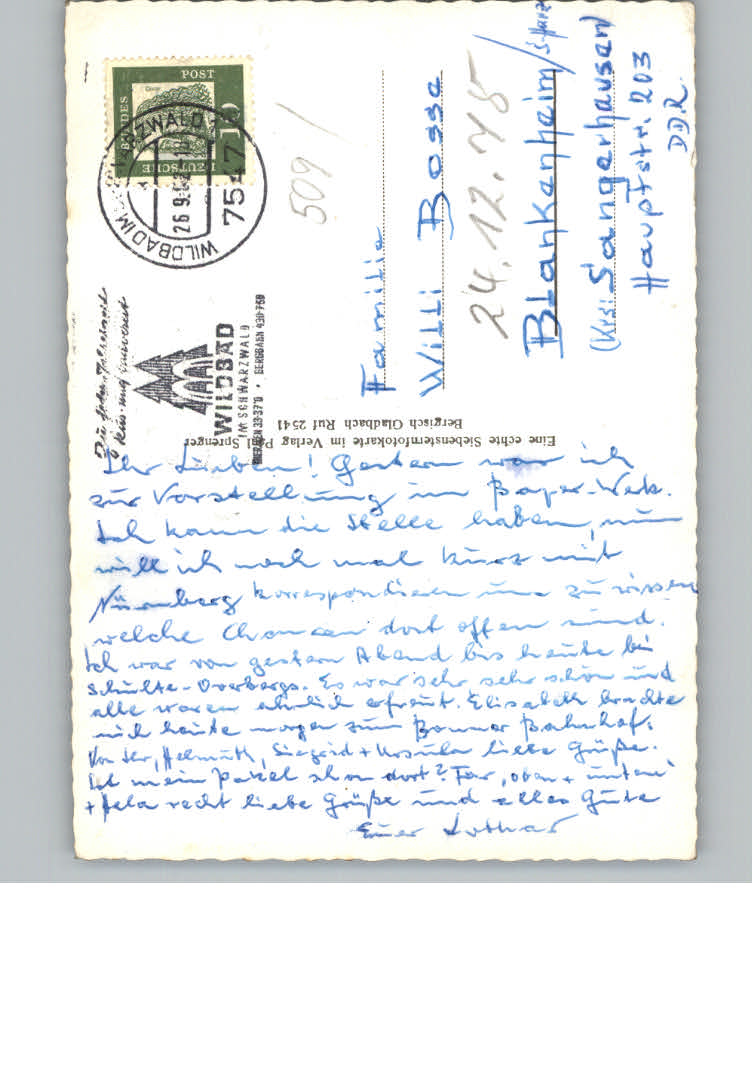 DEUTSCHE
BUNDES
POST
10
WILDBAD IM SCHWARZWALD
7547
26.9.
Zu jeder Jahreszeit
WILDBAD
IM SCHWARZWALD
BERGBAHN 430-750
509 /
Familie
Willi Bosse
24.12.75
Blankenheim/
(Krs: Sangerhausen
Hauptstr. 203
DDR.
Eine echte Siebensternfotokarte im Verlag Paul Sprenger
Bergisch Gladbach Ruf 2541
Ihr Lieben! Gestern war ich
zur Vorstellung im Bayer-Werk.
Ich kann die Stelle haben, nun
will ich noch mal kurz mit
Nürnberg korrespondieren um zu wissen
welche Chancen dort offen sind.
Ich war von gestern Abend bis heute bei
Schulte-Overbergs. Es war sehr sehr schön und
alle waren ehrlich erfreut. Elisabeth brachte
mich heute morgen zum Bonner Bahnhof.
Von ihr, Helmuth, Siegrid + Ursula liebe Grüße.
Ist mein Paket schon dort? Für, oben + unten
+ Hela recht liebe Grüße und alles Gute
Euer Lothar